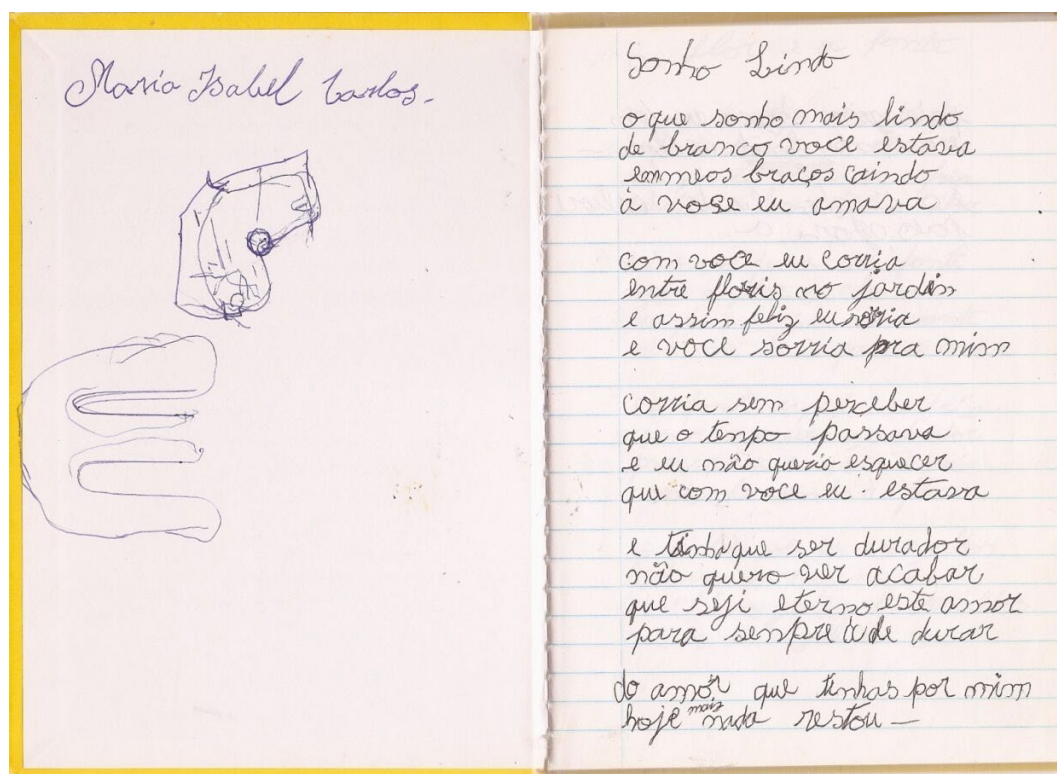 Maria Isabel Carlos.
Sonho Lindo
o que sonho mais lindo
de branco voce estava
em meos braços caindo
à vose eu amava
com voce eu corria
entre floris no jardin
e assim feliz eu ria
e voce sorria pra mim
corria sem perceber
que o tenpo passava
e eu não queria esquecer
que com voce eu estava
e tinha que ser durador
não quero ver acabar
que seji eterno este amor
para senpre à de durar
do amor que tinhas por mim
hoje mais nada restou —